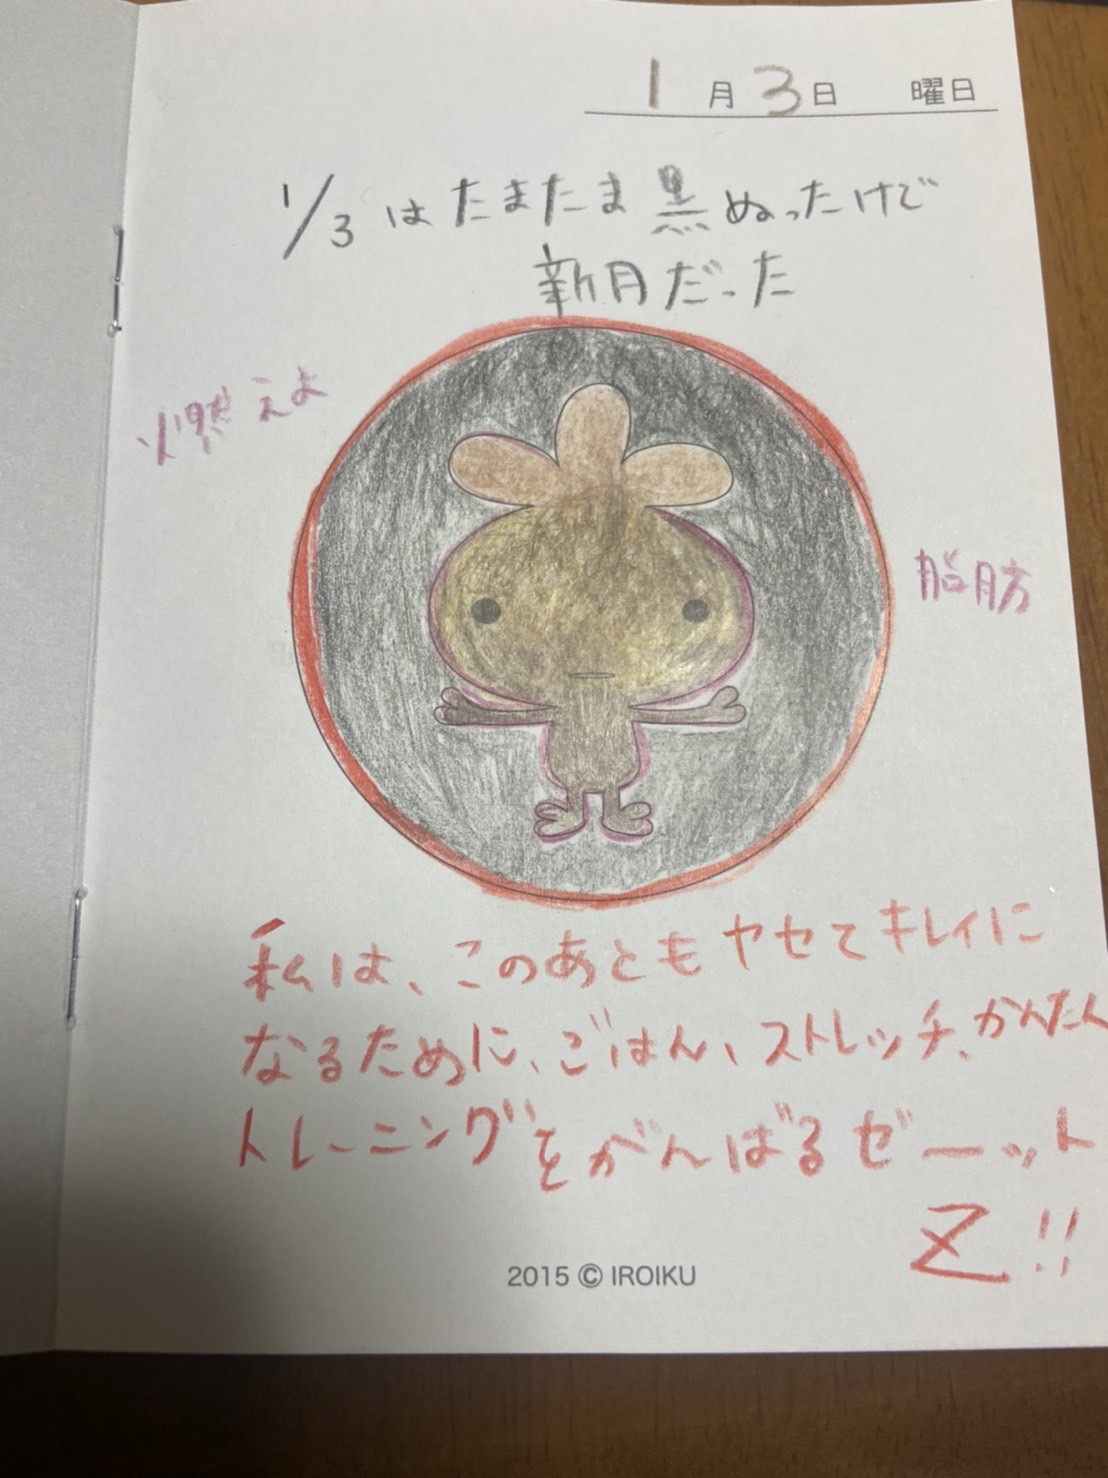 1月3日 曜日
1/3はたまたま黒ぬったけど
新月だった
燃えよ
脂肪
私は、このあともヤセてキレイに
なるために、ごはん、ストレッチ、かんたん
トレーニングをがんばるゼーット
Z!!
2015 © IROIKU